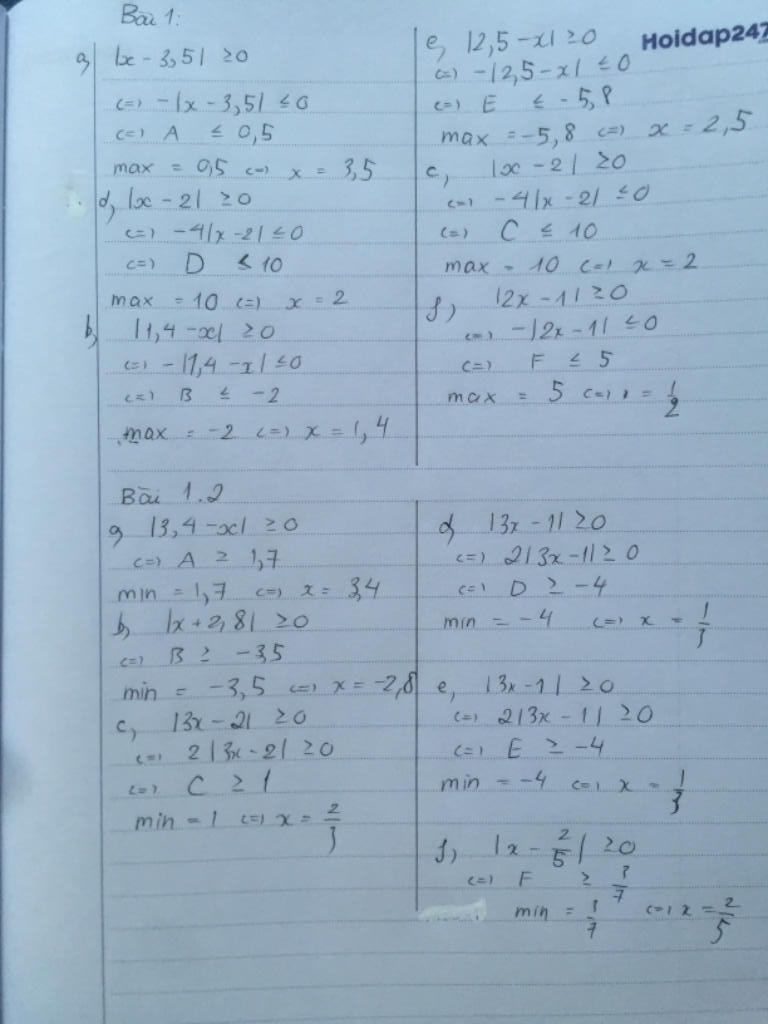 Bài 1:
a, |x - 3,5| ≥ 0
<=> -|x - 3,5| ≤ 0
<=> A ≤ 0,5
max = 0,5 <=> x = 3,5
d, |x - 2| ≥ 0
<=> -4|x - 2| ≤ 0
<=> D ≤ 10
max = 10 <=> x = 2
b, |1,4 - x| ≥ 0
<=> -|1,4 - x| ≤ 0
<=> B ≤ -2
max = -2 <=> x = 1,4
Hoidap247
e, |2,5 - x| ≥ 0
<=> -|2,5 - x| ≤ 0
<=> E ≤ -5,8
max = -5,8 <=> x = 2,5
c, |x - 2| ≥ 0
<=> -4|x - 2| ≤ 0
<=> C ≤ 10
max = 10 <=> x = 2
f, |2x - 1| ≥ 0
<=> -|2x - 1| ≤ 0
<=> F ≤ 5
max = 5 <=> = 1/2
Bài 1.2
a, |3,4 - x| ≥ 0
<=> A ≥ 1,7
min = 1,7 <=> x = 3,4
b, |x + 2,8| ≥ 0
<=> B ≥ -3,5
min = -3,5 <=> x = -2,8
c, |3x - 2| ≥ 0
<=> 2|3x - 2| ≥ 0
<=> C ≥ 1
min = 1 <=> x = 2/3
d, |3x - 1| ≥ 0
<=> 2|3x - 1| ≥ 0
<=> D ≥ -4
min = -4 <=> x = 1/3
e, |3x - 1| ≥ 0
<=> 2|3x - 1| ≥ 0
<=> E ≥ -4
min = -4 <=> x = 1/3
f, |x - 2/5| ≥ 0
<=> F ≥ 3/7
min = 3/7 <=> x = 2/5